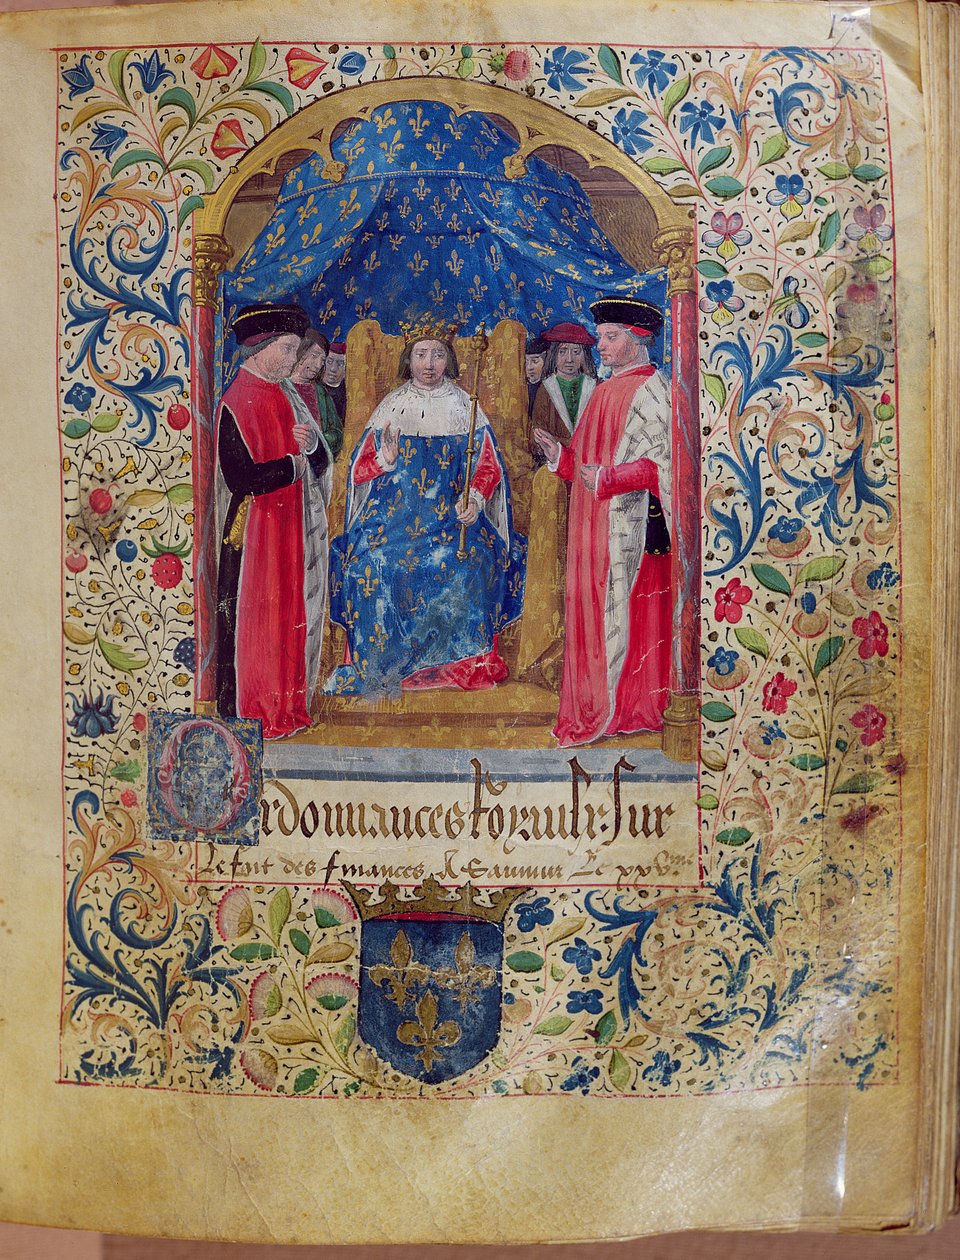 17
Ordonnances royaulx sur
Le fait des finances A Saumur Le xxv.me